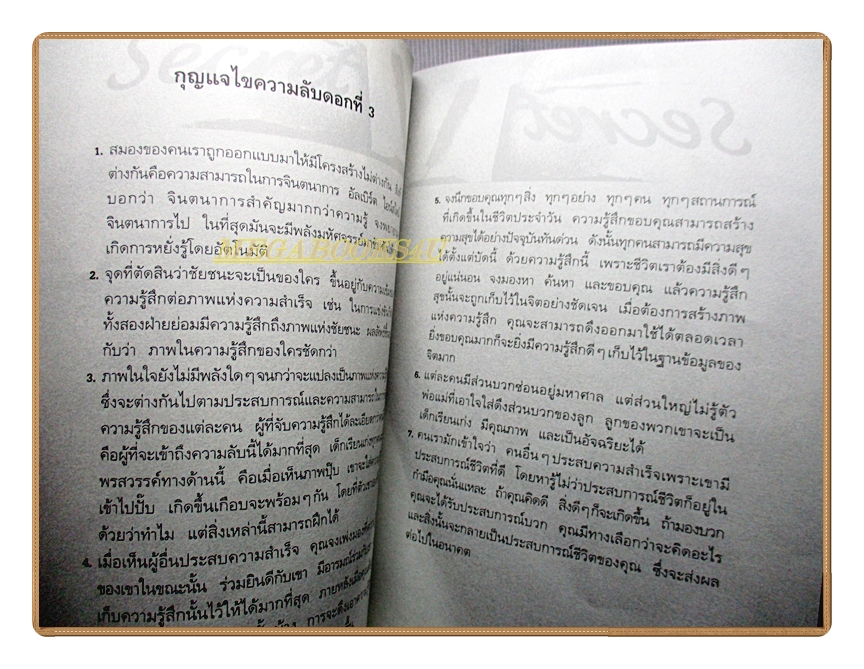 กุญแจไขความลับดอกที่ 3
1. สมองของคนเราถูกออกแบบมาให้มีโครงสร้างไม่ต่างกัน
ต่างกันคือความสามารถในการจินตนาการ อัลเบิร์ต
บอกว่า จินตนาการสำคัญมากกว่าความรู้
จินตนาการไป ในที่สุดมันจะมีพลังมหัศจรรย์
เกิดการหยั่งรู้โดยอัตโนมัติ
2. จุดที่ตัดสินว่าชัยชนะจะเป็นของใคร ขึ้นอยู่กับความ
ความรู้สึกต่อภาพแห่งความสำเร็จ เช่น ในการ
ทั้งสองฝ่ายย่อมมีความรู้สึกถึงภาพแห่งชัยชนะ
กับว่า ภาพในความรู้สึกของใครชัดกว่า
3. ภาพในใจยังไม่มีพลังใดๆจนกว่าจะแปลงเป็นภาพแห่งความ
ซึ่งจะต่างกันไปตามประสบการณ์และความสามารถใน
ความรู้สึกของแต่ละคน ผู้ที่จับความรู้สึกได้ละเอียด
คือผู้ที่จะเข้าถึงความลับนี้ได้มากที่สุด เด็กเรียนเก่ง
พรสวรรค์ทางด้านนี้ คือเมื่อเห็นภาพปุ๊บ เขาจะใส่
เข้าไปปั๊บ เกิดขึ้นเกือบจะพร้อมๆกัน โดยที่ตัว
ด้วยว่าทำไม แต่สิ่งเหล่านี้สามารถฝึกได้
4. เมื่อเห็นผู้อื่นประสบความสำเร็จ คุณจงเพ่งมอง
ของเขาในขณะนั้น ร่วมยินดีกับเขา มีอารมณ์ร่วม
เก็บความรู้สึกนั้นไว้ให้ได้มากที่สุด ภายหลังเมื่อ
การจะดึงเอา
MEGABOOKS4U
Secret
5. จงนึกขอบคุณทุกๆสิ่ง ทุกๆอย่าง ทุกๆคน ทุกๆสถานการณ์
ที่เกิดขึ้นในชีวิตประจำวัน ความรู้สึกขอบคุณสามารถสร้าง
ความสุขได้อย่างปัจจุบันทันด่วน ดังนั้นทุกคนสามารถมีความสุข
ได้ตั้งแต่บัดนี้ ด้วยความรู้สึกนี้ เพราะชีวิตเราต้องมีสิ่งดีๆ
อยู่แน่นอน จงมองหา ค้นหา และขอบคุณ แล้วความรู้สึก
สุขนั้นจะถูกเก็บไว้ในจิตอย่างชัดเจน เมื่อต้องการสร้างภาพ
แห่งความรู้สึก คุณจะสามารถดึงออกมาใช้ได้ตลอดเวลา
ยิ่งขอบคุณมากก็จะยิ่งมีความรู้สึกดีๆเก็บไว้ในฐานข้อมูลของ
จิตมาก
6. แต่ละคนมีส่วนบวกซ่อนอยู่มหาศาล แต่ส่วนใหญ่ไม่รู้ตัว
พ่อแม่ที่เอาใจใส่ดึงส่วนบวกของลูก ลูกของพวกเขาจะเป็น
เด็กเรียนเก่ง มีคุณภาพ และเป็นอัจฉริยะได้
7. คนเรามักเข้าใจว่า คนอื่นๆประสบความสำเร็จเพราะเขามี
ประสบการณ์ชีวิตที่ดี โดยหารู้ไม่ว่าประสบการณ์ชีวิตก็อยู่ใน
กำมือคุณนั่นแหละ ถ้าคุณคิดดี สิ่งดีๆก็จะเกิดขึ้น ถ้ามองบวก
คุณจะได้รับประสบการณ์บวก คุณมีทางเลือกว่าจะคิดอะไร
และสิ่งนั้นจะกลายเป็นประสบการณ์ชีวิตของคุณ ซึ่งจะส่งผล
ต่อไปในอนาคต